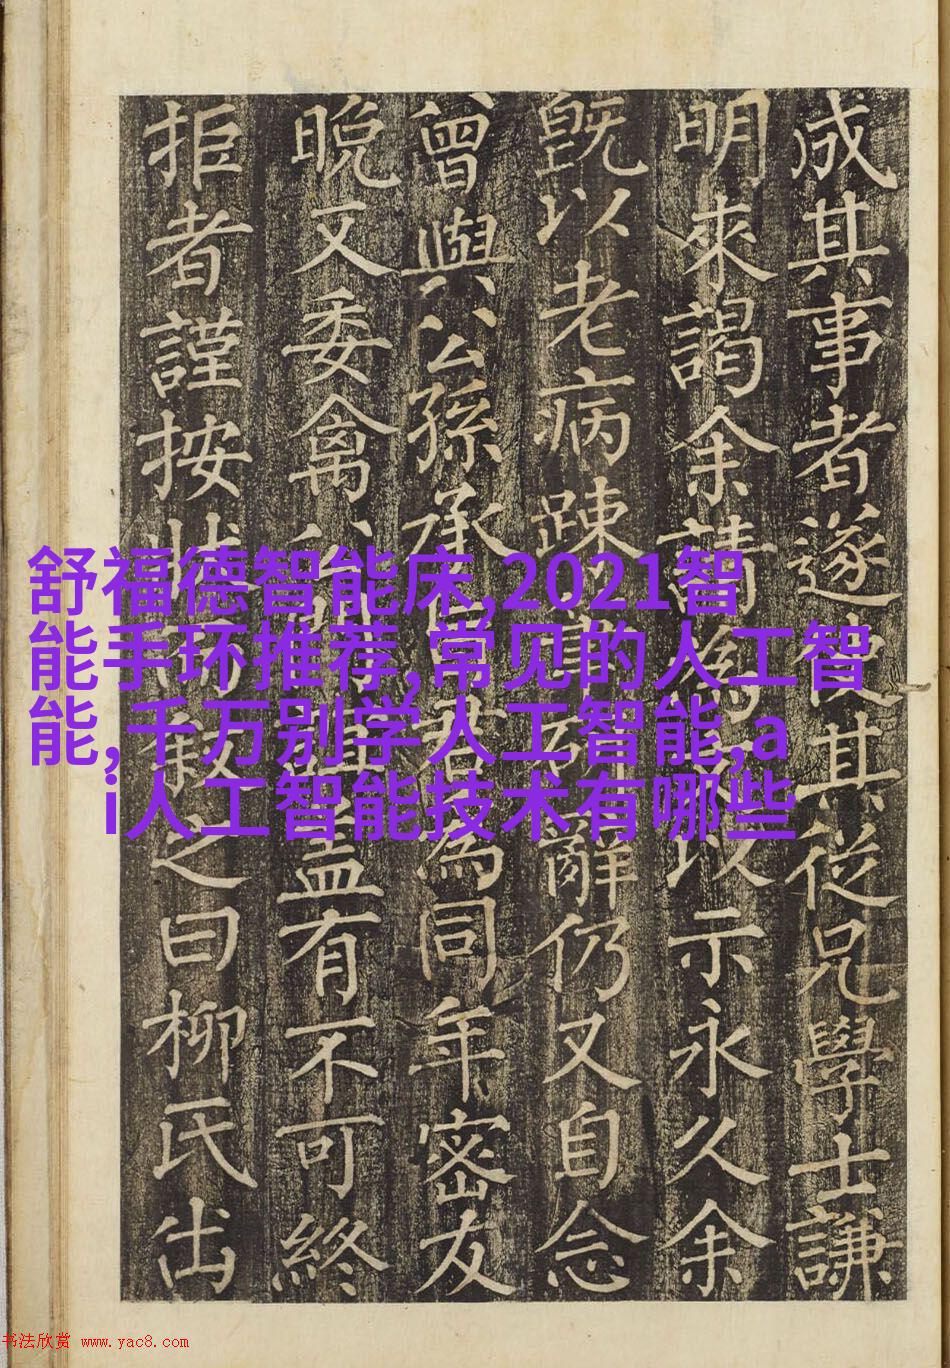 成其事者遂使其從兄學士謙
明來謁余請為以示永久余
既以老病踈辭仍又自念
曾與公孫承君為同年密友
晚又委禽公盖有不可終
拒者謹按狀叙之曰柳氏出
舒福德智能床,2021智
能手环推荐,常见的人工智
能,千万别学人工智能,a
i人工智能技术有哪些
书法欣赏 www.yac8.com